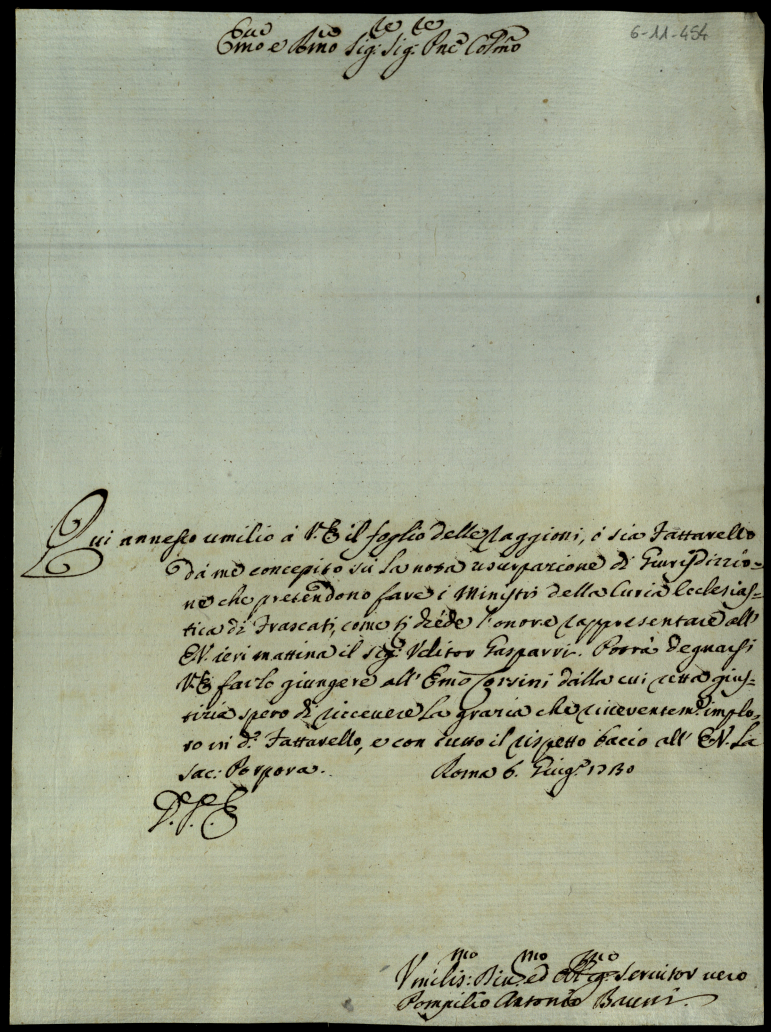 6-11-454
Emo e Rmo Sig: Sig: Pne Colmo
Qui annesso umilio à V.E il foglio delle raggioni, ó sia Fattarello
da me concepito sù la nota usurpazione di Giurisdizzio=
ne che pretendono fare i Ministri della Curia Ecclesias=
tica di Frascati, come si diede l'onore rappresentare all'
EV. ieri mattina il Sig: Uditor Gasparri. Potrà degnarsi
V.E farlo giungere all' Emo Corsini dalla cui retta gius=
tizia spero di riccevere la grazia che riceventem: implo=
ro in d.o Fattarello, e con tutto il rispetto bacio all' EV. La
Sac: Porpora. Roma 6. Giug.o 1730
D.V.E
Umilis:mo Div:mo ed Obligmo Servitor vero
Pompilio Antonio